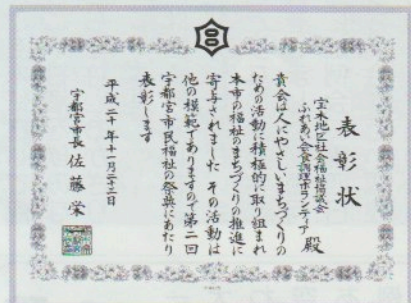 表彰状
宝木地区社会福祉協議会
ふれあい会食調理ボランティア 殿
貴会は人にやさしいまちづくりの
ための活動に積極的に取り組まれ
本市の福祉のまちづくりの推進に
寄与されました その活動は
他の模範でありますので第二回
宇都宮市民福祉の祭典にあたり
表彰します
平成二十年十一月二十二日
宇都宮市長 佐藤栄一